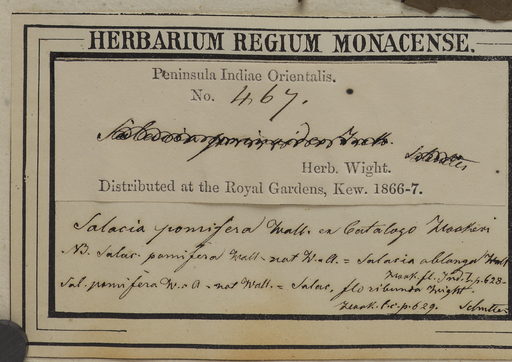 HERBARIUM REGIUM MONACENSE.
Peninsula Indiae Orientalis.
No. 467.
Herb. Wight.
Distributed at the Royal Gardens, Kew. 1866-7.
Salacia pomifera Wall. ex Catalogo Hookeri
NB. Salac. pomifera Wall. not W. & A. = Salacia oblonga Wall
Hook. fl. Ind. I. p. 628-
Sal. pomifera W. & A. - not Wall. = Salac. floribunda Wight.
Hook. l. c. p. 629.